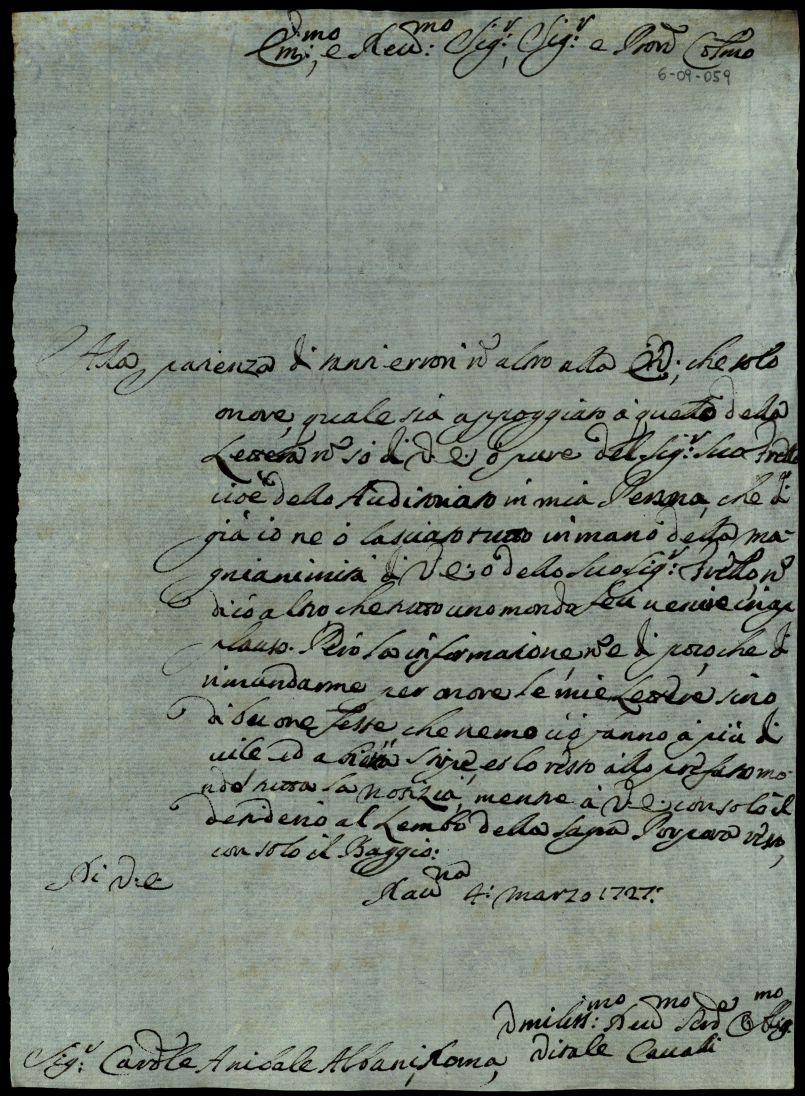 Em:mo, e Reu:mo Sig:r, Sig:r e Pron Colmo
6-09-059
Alla pazienza di tanti errori no altro alla E.V:, che solo
onore, quale sia appoggiato à questo della
Lettera no sò di V:E:, ò pure del Sig:r Suo Frello
cioè dello Auditoriato in mia Penna, che di
già io ne ò lasciato tutto in mano della ma-
gnianimità di V:E: o dello Suo Sig:r Frello, no
dicò altro che tutto uno monda
plauso. Però la informazione no e di poco, che di
rimandarme per onore le mie Lettere sino
di buone feste che nemo ciò fanno à più di
vile ed
tutta la notizia, mentre à V:E: con solo il
desiderio al Lembo della Sagra Porpora resto,
con solo il Baggio:
Di V:E:
Rauna 4: marzo 1727:
Umiliss:mo Deu:mo Serre Oblig:mo
Vitale Cavalli
Sig:r Cardle Anibale Albani, Roma,